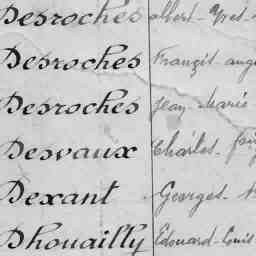 Desroches Albert - Yves -
Desroches François
Desroches Jean - Marie
Desvaux Charles -
Dexant Georges -
Dhouailly Edouard - Louis